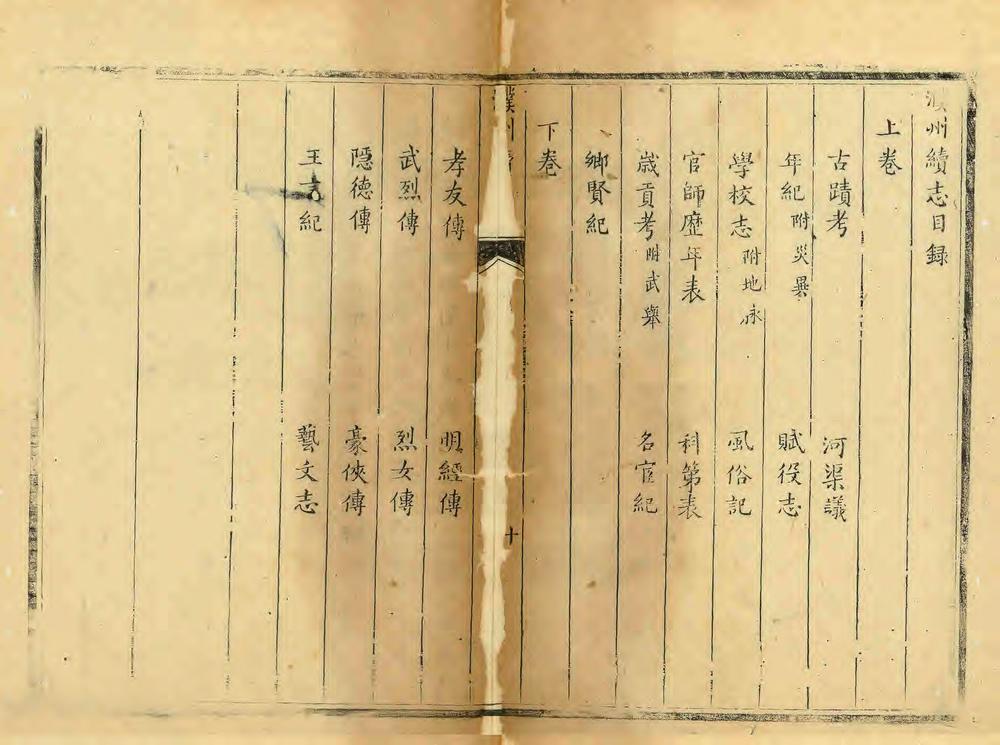 濮州續志目録
上卷
古蹟考 河渠議
年紀 附災異 賦役志
學校志 附地泳 風俗記
官師歷年表 科第表
歳貢考 附武舉 名宦紀
鄉賢紀
下巻
濮州
十
孝友傳 明經傳
武烈傳 烈女傳
隱德傳 豪俠傳
王言紀 藝文志